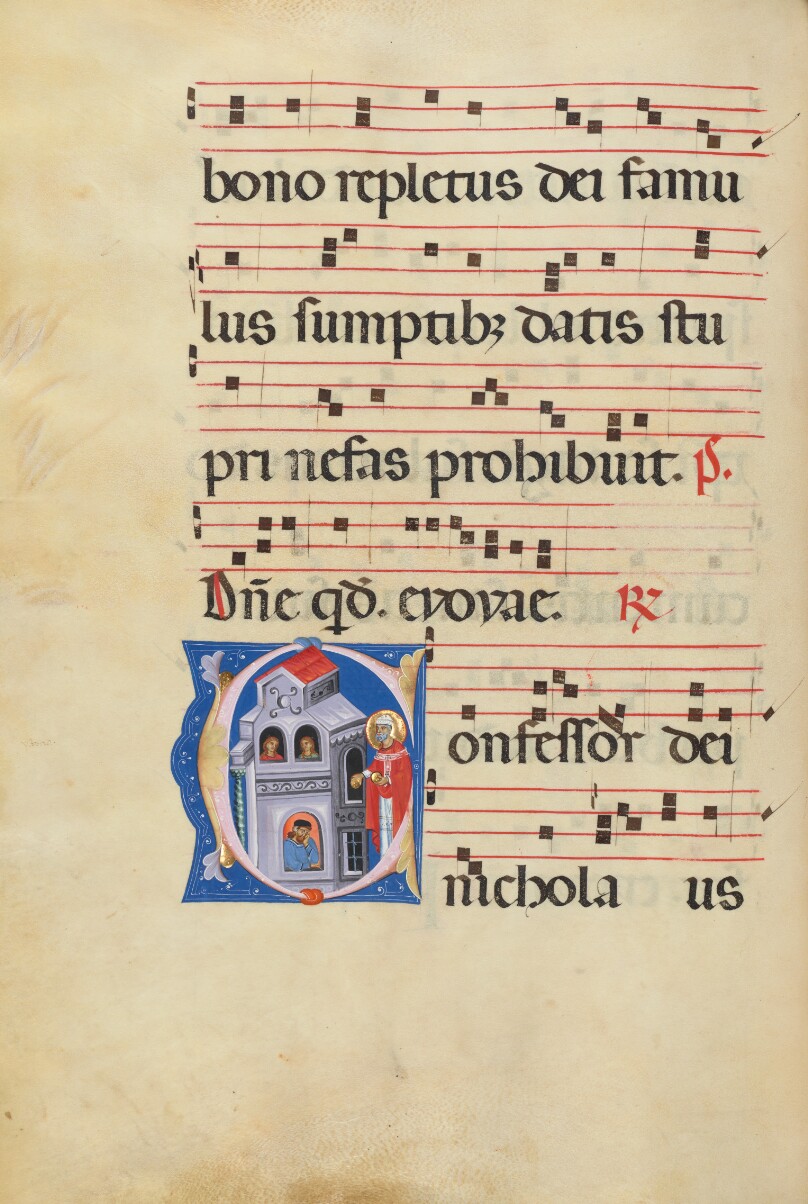 bono repletus dei famu
lus sumptibꝫ datis stu
pri nefas prohibuit. p̃.
Dñe qd̄. evovae. R℣
Confessor dei
nichola us